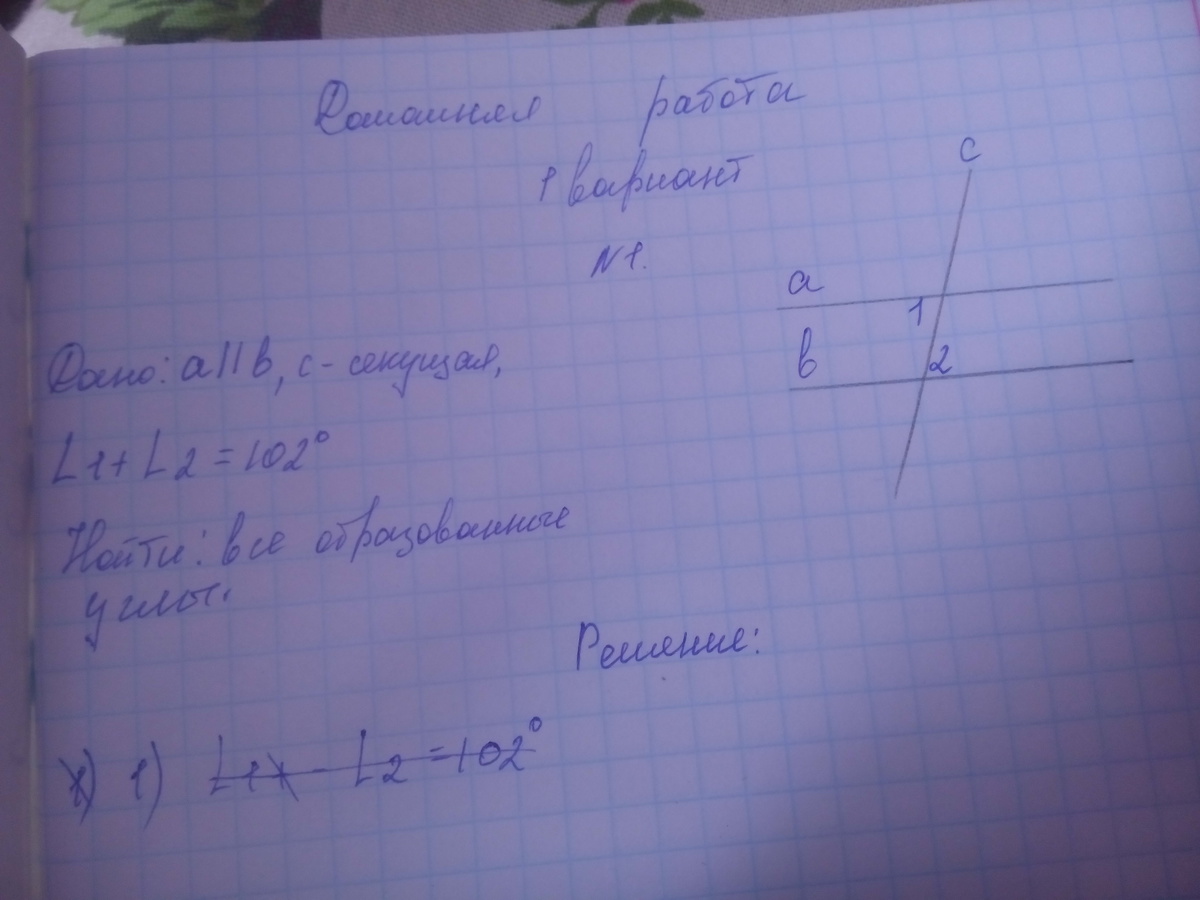 Домашняя работа
1 вариант
N1.
c
a
1
b
2
Дано: a||b, c- секущая,
∠1+∠2=102°
Найти: все образованные
углы.
Решение:
1) 1) ∠1+ ∠2=102°